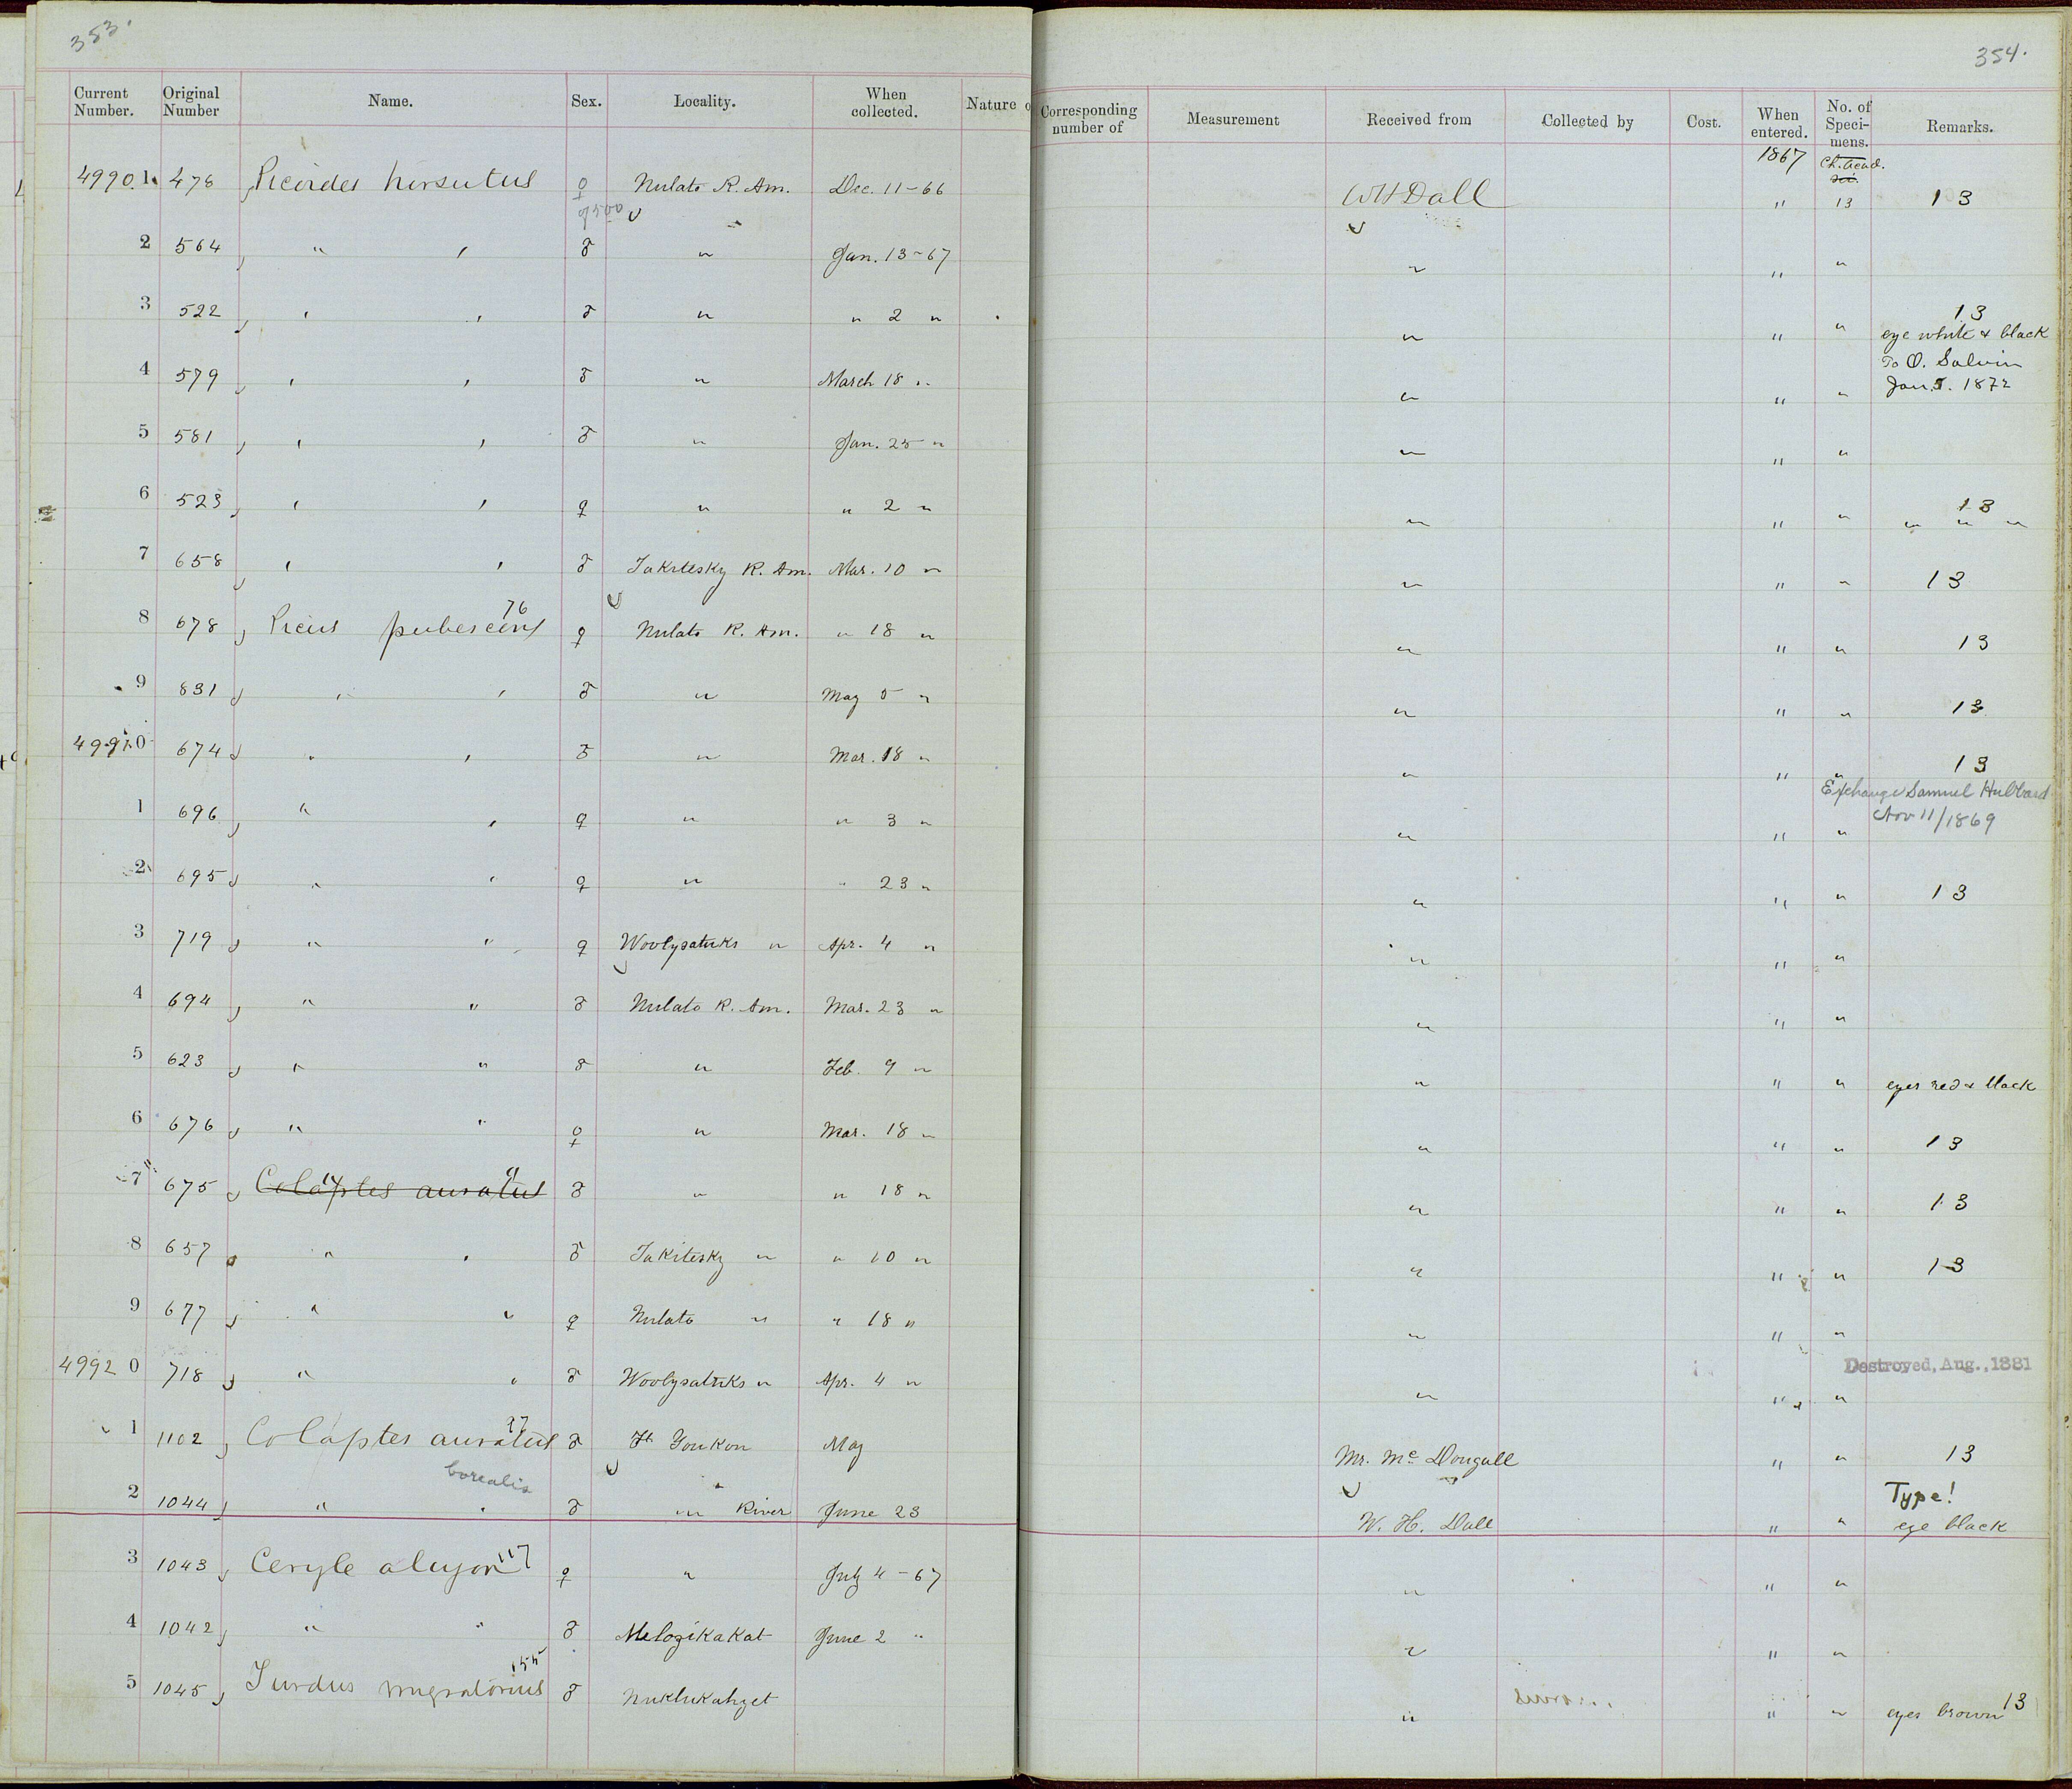 353.
354.
Current Number. Original Number Name. Sex. Locality. When collected. Nature o Corresponding number of Measurement Received from Collected by Cost. When entered. No. of Specimens. Remarks.
1867 Ch. Acad. Sci.
49901 478 Picoides hirsutus ♀ Nulato R. Am. Dec. 11-66 WH Dall " 13 13
2 564 " " ♂ " Jan. 13-67 " " "
3 522 " " ♂ " " 2 " " " " 13 eye white & black
4 579 " " ♂ " March 18 " " " " To O. Salvin Jan. 5. 1872
5 581 " " ♂ " Jan. 25 " " " "
6 523 " " ♀ " " 2 " " " " 13 " " "
7 658 " " ♂ Takitesky R. Am. Mar. 10 " " " " 13
8 678 Picus pubescens 76 ♀ Nulato R. Am. " 18 " " " " 13
9 831 " " ♂ " May 5 " " " " 13
49910 674 " " ♂ " Mar. 18 " " " " 13
1 696 " " ♀ " " 3 " " " " Exchange Samuel Hubbard Nov 11/1869
2 695 " " ♀ " " 23 " " " " 13
3 719 " " ♀ Woolysatuks " Apr. 4 " " " "
4 694 " " ♂ Nulato R. Am. Mar. 23 " " " "
5 623 " " ♂ " Feb. 9 " " " " eyes red & black
6 676 " " ♀ " Mar. 18 " " " " 13
7 675 Colaptes auratus ♂ " " 18 " " " " 13
8 657 " " ♂ Takitesky " " 10 " " " " 13
9 677 " " ♀ Nulato " " 18 " " " "
49920 718 " " ♂ Woolysatuks " Apr. 4 " " " " Destroyed, Aug., 1881
1 1102 Colaptes auratus 97 ♂ Ft Youkon May Mr. McDougall " " 13
borealis
2 1044 " " ♂ " River June 23 W. H. Dall " " Type! eye black
3 1043 Ceryle alcyon 117 ♀ " July 4-67 " " "
4 1042 " " ♂ Melozikakat June 2 " " " "
5 1045 Turdus migratorius 155 ♂ Nuklukahyet " " " eyes brown 13